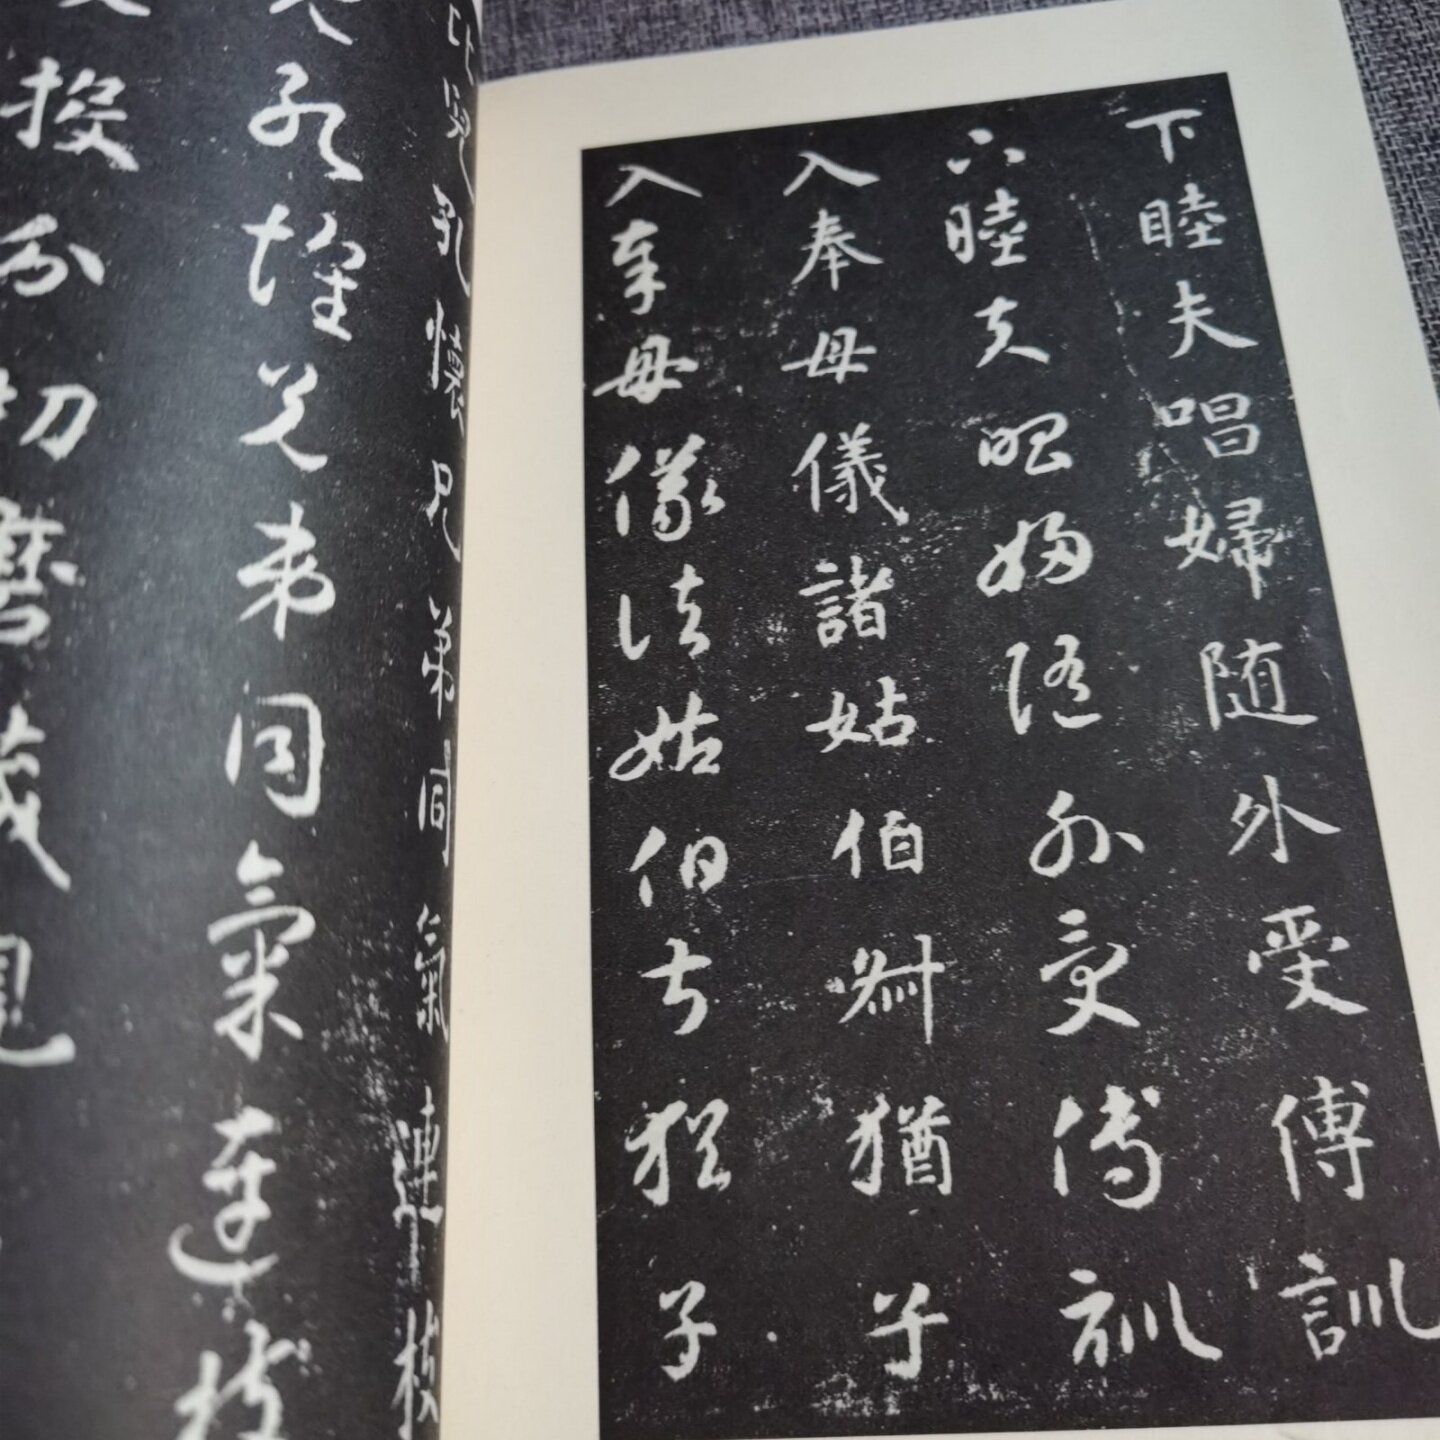 下睦夫唱婦随外受傅訓
下睦夫唱婦随外受傅訓
入奉母儀諸姑伯叔猶子
入奉母儀諸姑伯叔猶子
比兒孔懷兄弟同氣連枝
孔懷兄弟同氣連枝
投分切磨箴規